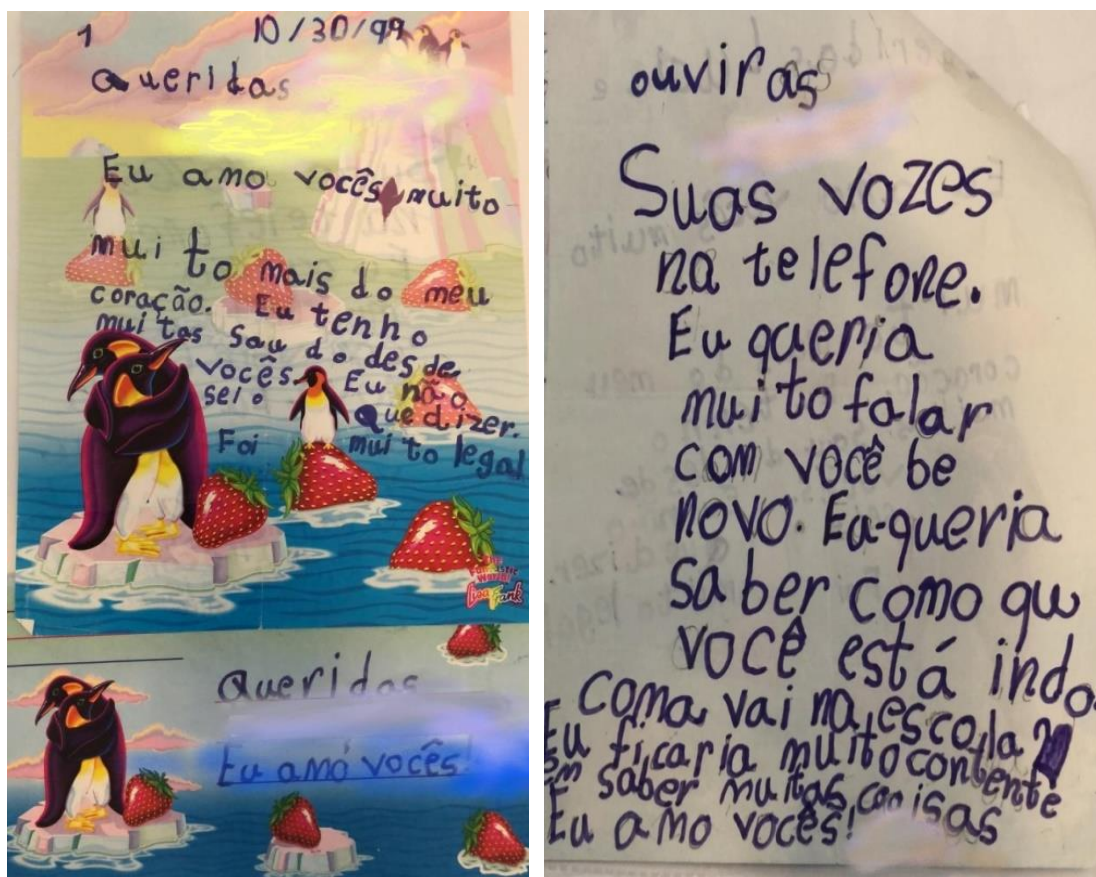 1 10/30/99
Queridas
Eu amo vocês muito
muito mais do meu
coração. Eu tenho
muitas saudo des de
vocês. Eu não
sei o que dizer.
Foi muito legal
Lisa Frank
Queridas
Eu amo vocês!
ouviras
Suas vozes
na telefone.
Eu queria
muito falar
com você be
novo. Eu queria
saber como qu
você está indo
Como vai na escola?
Eu ficaria muito contente
em saber muitas coisas
Eu amo vocês!